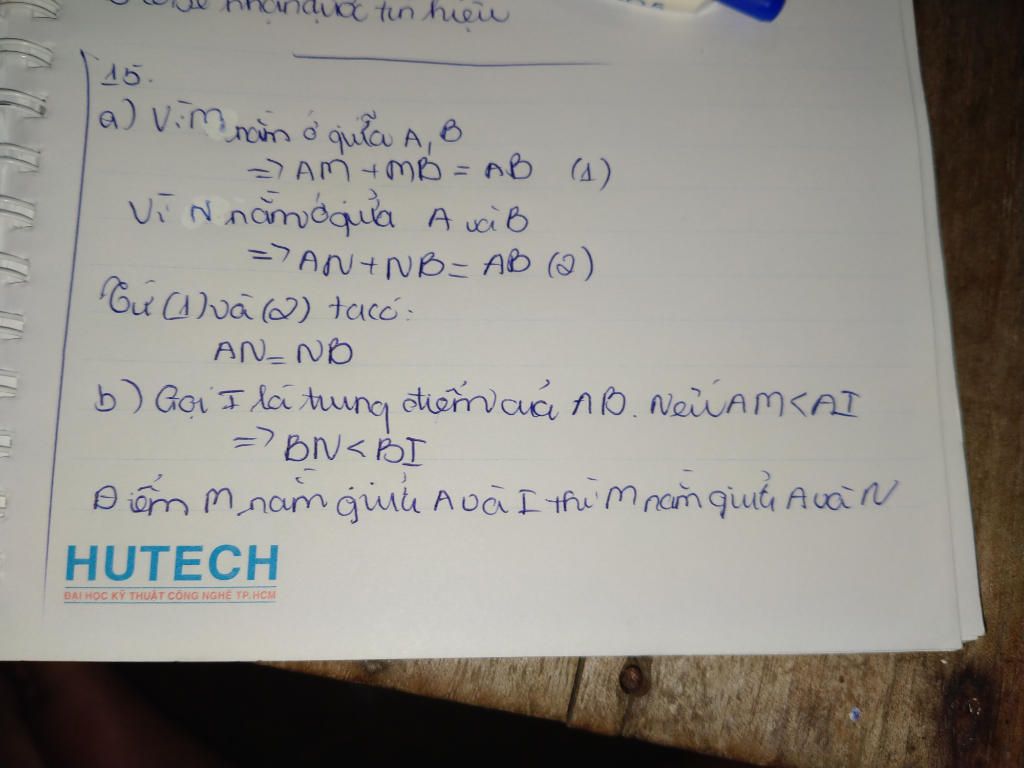 nhận được tín hiệu
15.
a) Vì M nằm ở giữa A, B
=> AM + MB = AB (1)
Vì N nằm ở giữa A và B
=> AN + NB = AB (2)
Từ (1) và (2) ta có:
AN = NB
b) Gọi I là trung điểm của AB. Nếu AM < AI
=> BN < BI
Điểm M nằm giữa A và I thì M nằm giữa A và N
HUTECH
ĐẠI HỌC KỸ THUẬT CÔNG NGHỆ TP.HCM